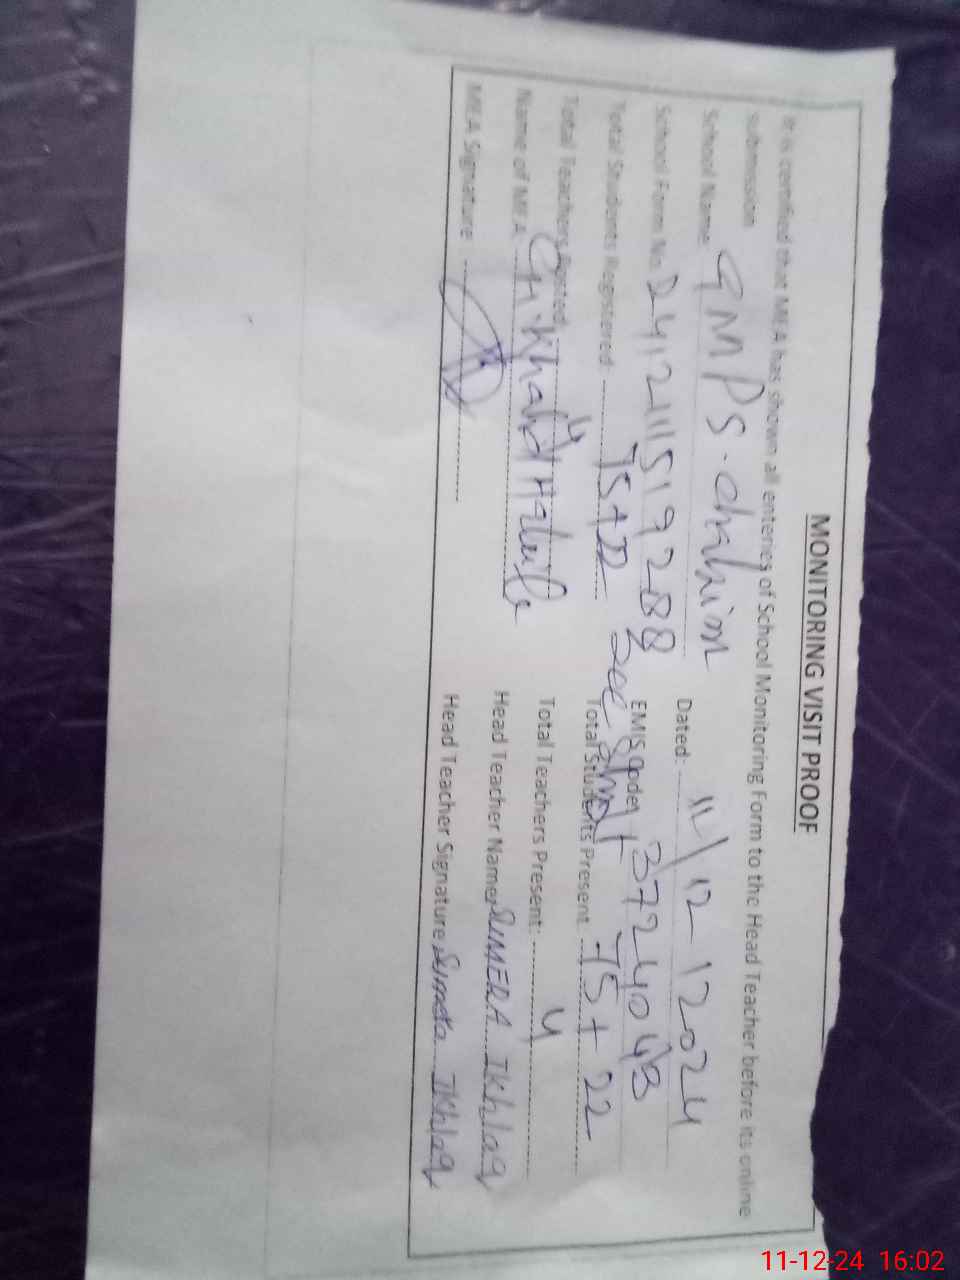 MONITORING VISIT PROOF
It is certified that MEA has shown all enteries of School Monitoring Form to the Head Teacher before its online
submission
School Name GMPS. chahim Dated: 11/12/2024
School Form No. D241211151928 88 EMIS Code 37240 43
Total Students Registered: 75+22 Total Students Present: 75+22
Total Teachers Posted: 4 Total Teachers Present: 4
Name of MEA: CH. Khalid Head Teacher Name SUMERA IKhlaq
MEA Signature Head Teacher Signature Sumera IKhlaq
11-12-24 16:02